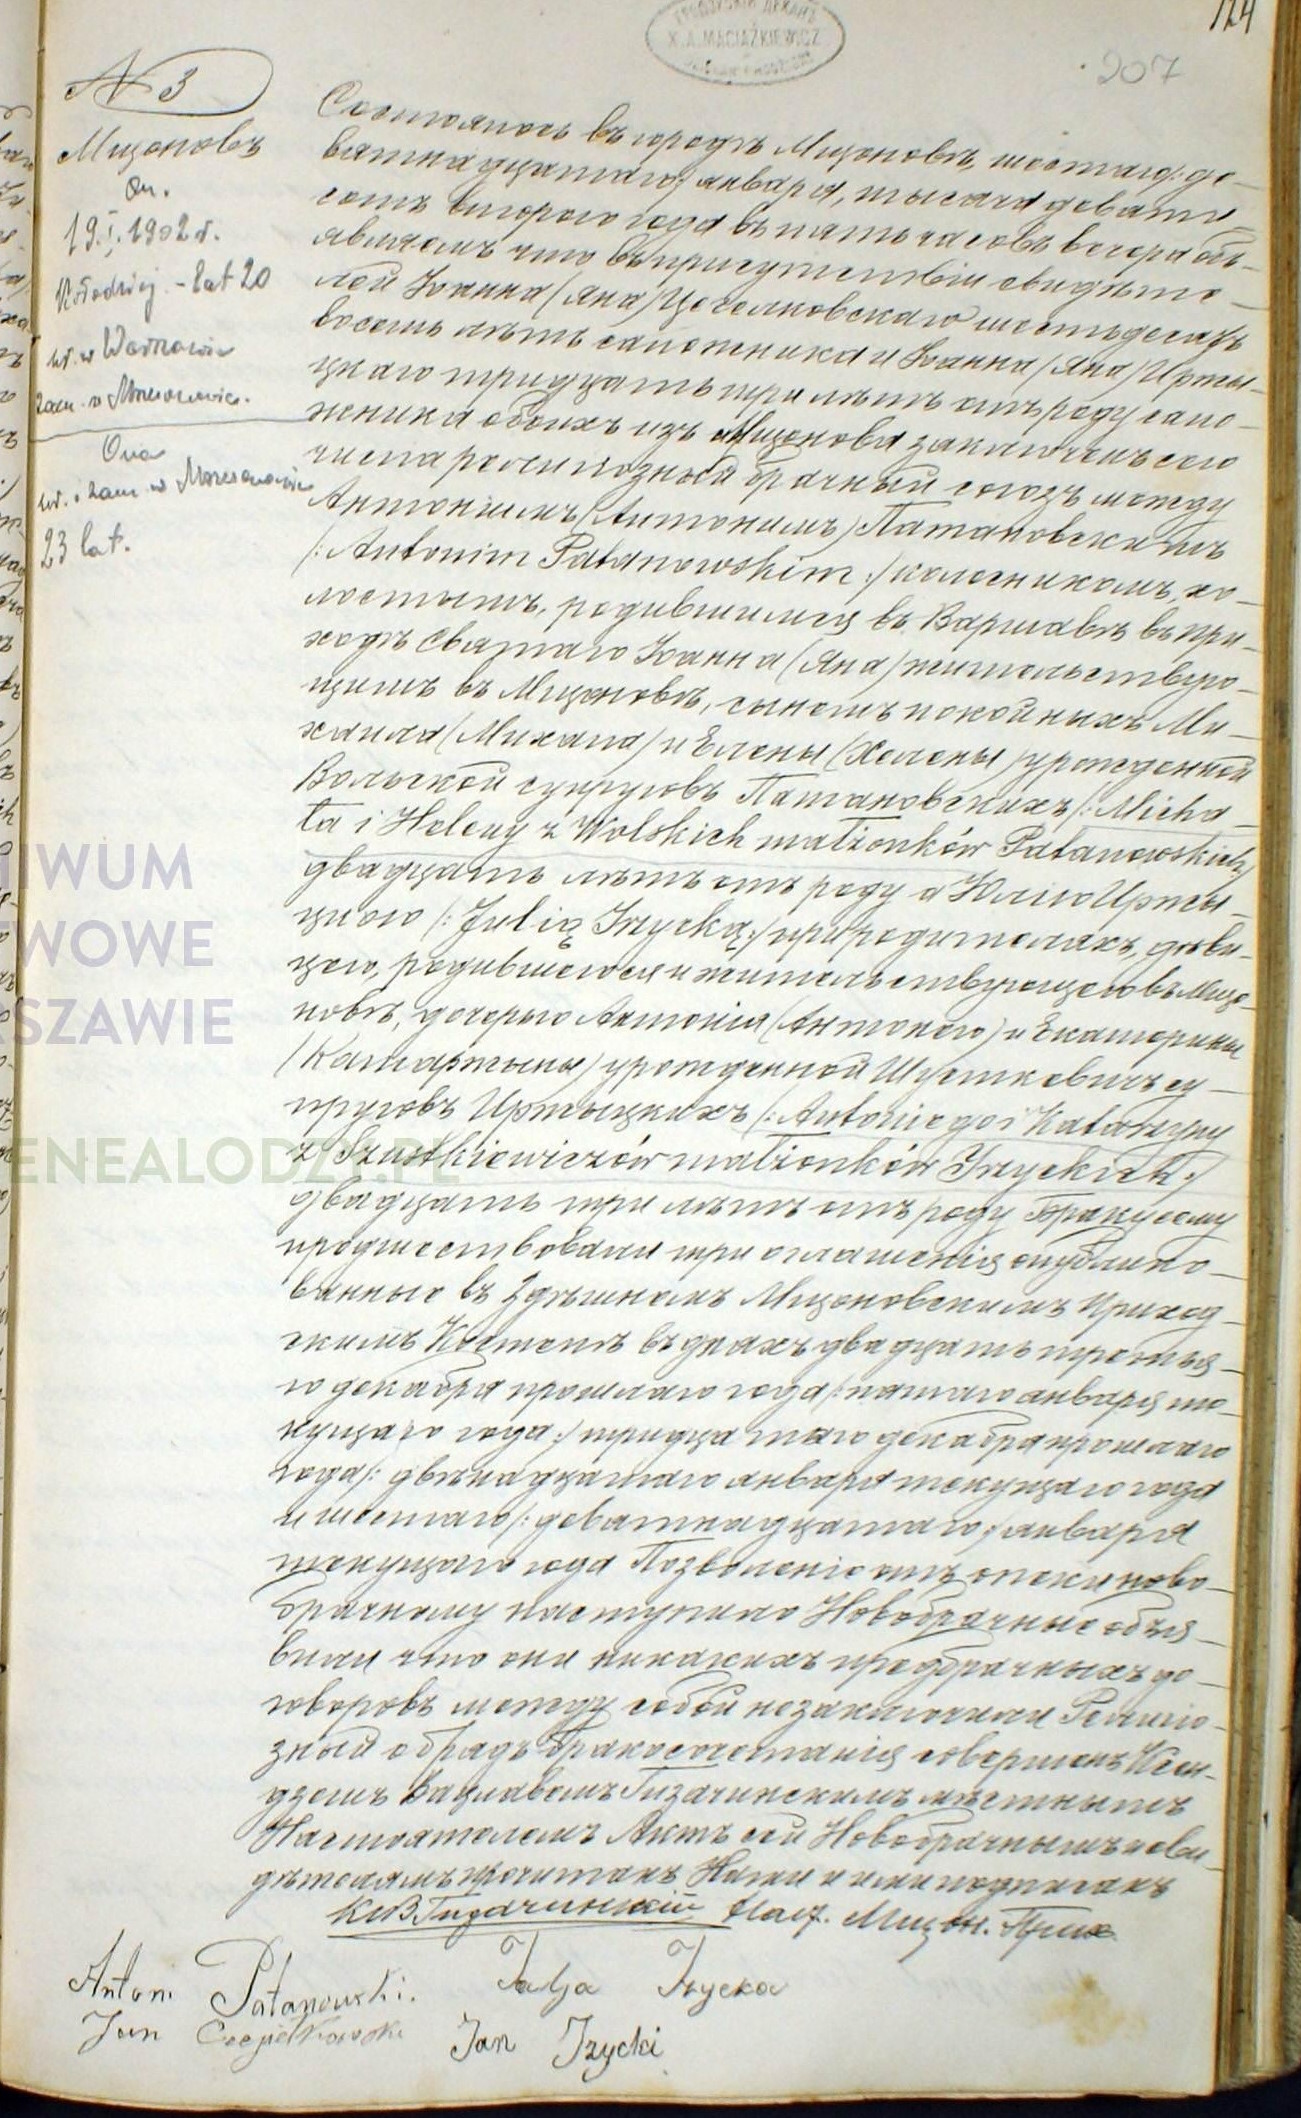 124
207
ГРОДЗИСКІЙ ДЕКАНЪ
X. A. MACIĄŻKIEWICZ
N 3
Мщоновъ
On.
19.I.1902 r.
Kołodziej - lat 20
ur. w Warszawie
zam. w Mszczonowie.
Ona
ur. i zam. w Mszczonowie
23 lat.
Состоялось въ городѣ Мщоновѣ, шестаго /: де-
вятнадцатаго :/ января, тысяча девять-
сотъ второго года въ пять часовъ вечера объ-
являемъ что въ присутствіи свидѣте-
лей Іоанна (Яна) Цегелковскаго шестьдесятъ
восемь лѣтъ сапожника и Іоанна (Яна) Иржы-
цкаго тридцать три лѣтъ отъ роду сапо-
жника обоихъ изъ Мщонова заключенъ сего
числа религіозный брачный союзъ между
Антоніемъ (Антонимъ) Патановскимъ
/: Antonim Patanowskim :/ колесникомъ, хо-
лостымъ, родившимся въ Варшавѣ въ при-
ходѣ Святаго Іоанна (Яна) жительствую-
щимъ въ Мщоновѣ, сыномъ покойныхъ Ми-
хаила (Михала) и Елены (Хелены) урожденной
Вольской супруговъ Патановскихъ /: Micha-
ła i Heleny z Wolskich małżonków Patanowskich :/
двадцать лѣтъ отъ роду и Юліею Иржы-
цкою /: Julią Irzycką :/ при родителяхъ, дѣви-
цею, родившеюся и жительствующею въ Мщо-
новѣ, дочерью Антонія (Антонего) и Екатерины
(Катаржыны) урожденной Шусткевичъ су-
пруговъ Иржыцкихъ /: Antoniego i Katarzyny
z Szustkiewiczów małżonków Irzyckich :/
двадцать три лѣтъ отъ роду Браку сему
предшествовали три оглашенія опублико-
ванные въ здѣшнемъ Мщоновскимъ Приход-
скимъ Костелѣ въ дняхъ двадцать третья-
го декабря прошлаго года /: пятаго января те-
кущаго года :/ тридцатаго декабря прошлаго
года /: двѣнадцатаго января текущаго года
и шестаго /: девятнадцатаго :/ января
текущаго года Позволеніе отъ опеки ново-
брачному наступило Новобрачные объя-
вили что они никакихъ предбрачныхъ до-
говоровъ между собой незаключили Религіо-
зный обрядъ бракосочетанія совершенъ Ксен-
дзомъ Вацлавомъ Гизачинскимъ мѣстнымъ
Настоятелемъ Актъ сей Новобрачнымъ и сви-
дѣтелямъ прочитанъ Нами и ими подписанъ
Наст. Мщон. Прих.
Antoni Patanowski. Julja Irzycka
Jan Cegiełkowski Jan Irzycki
IWUM
WOWE
SZAWIE
ENEALODZY.PL